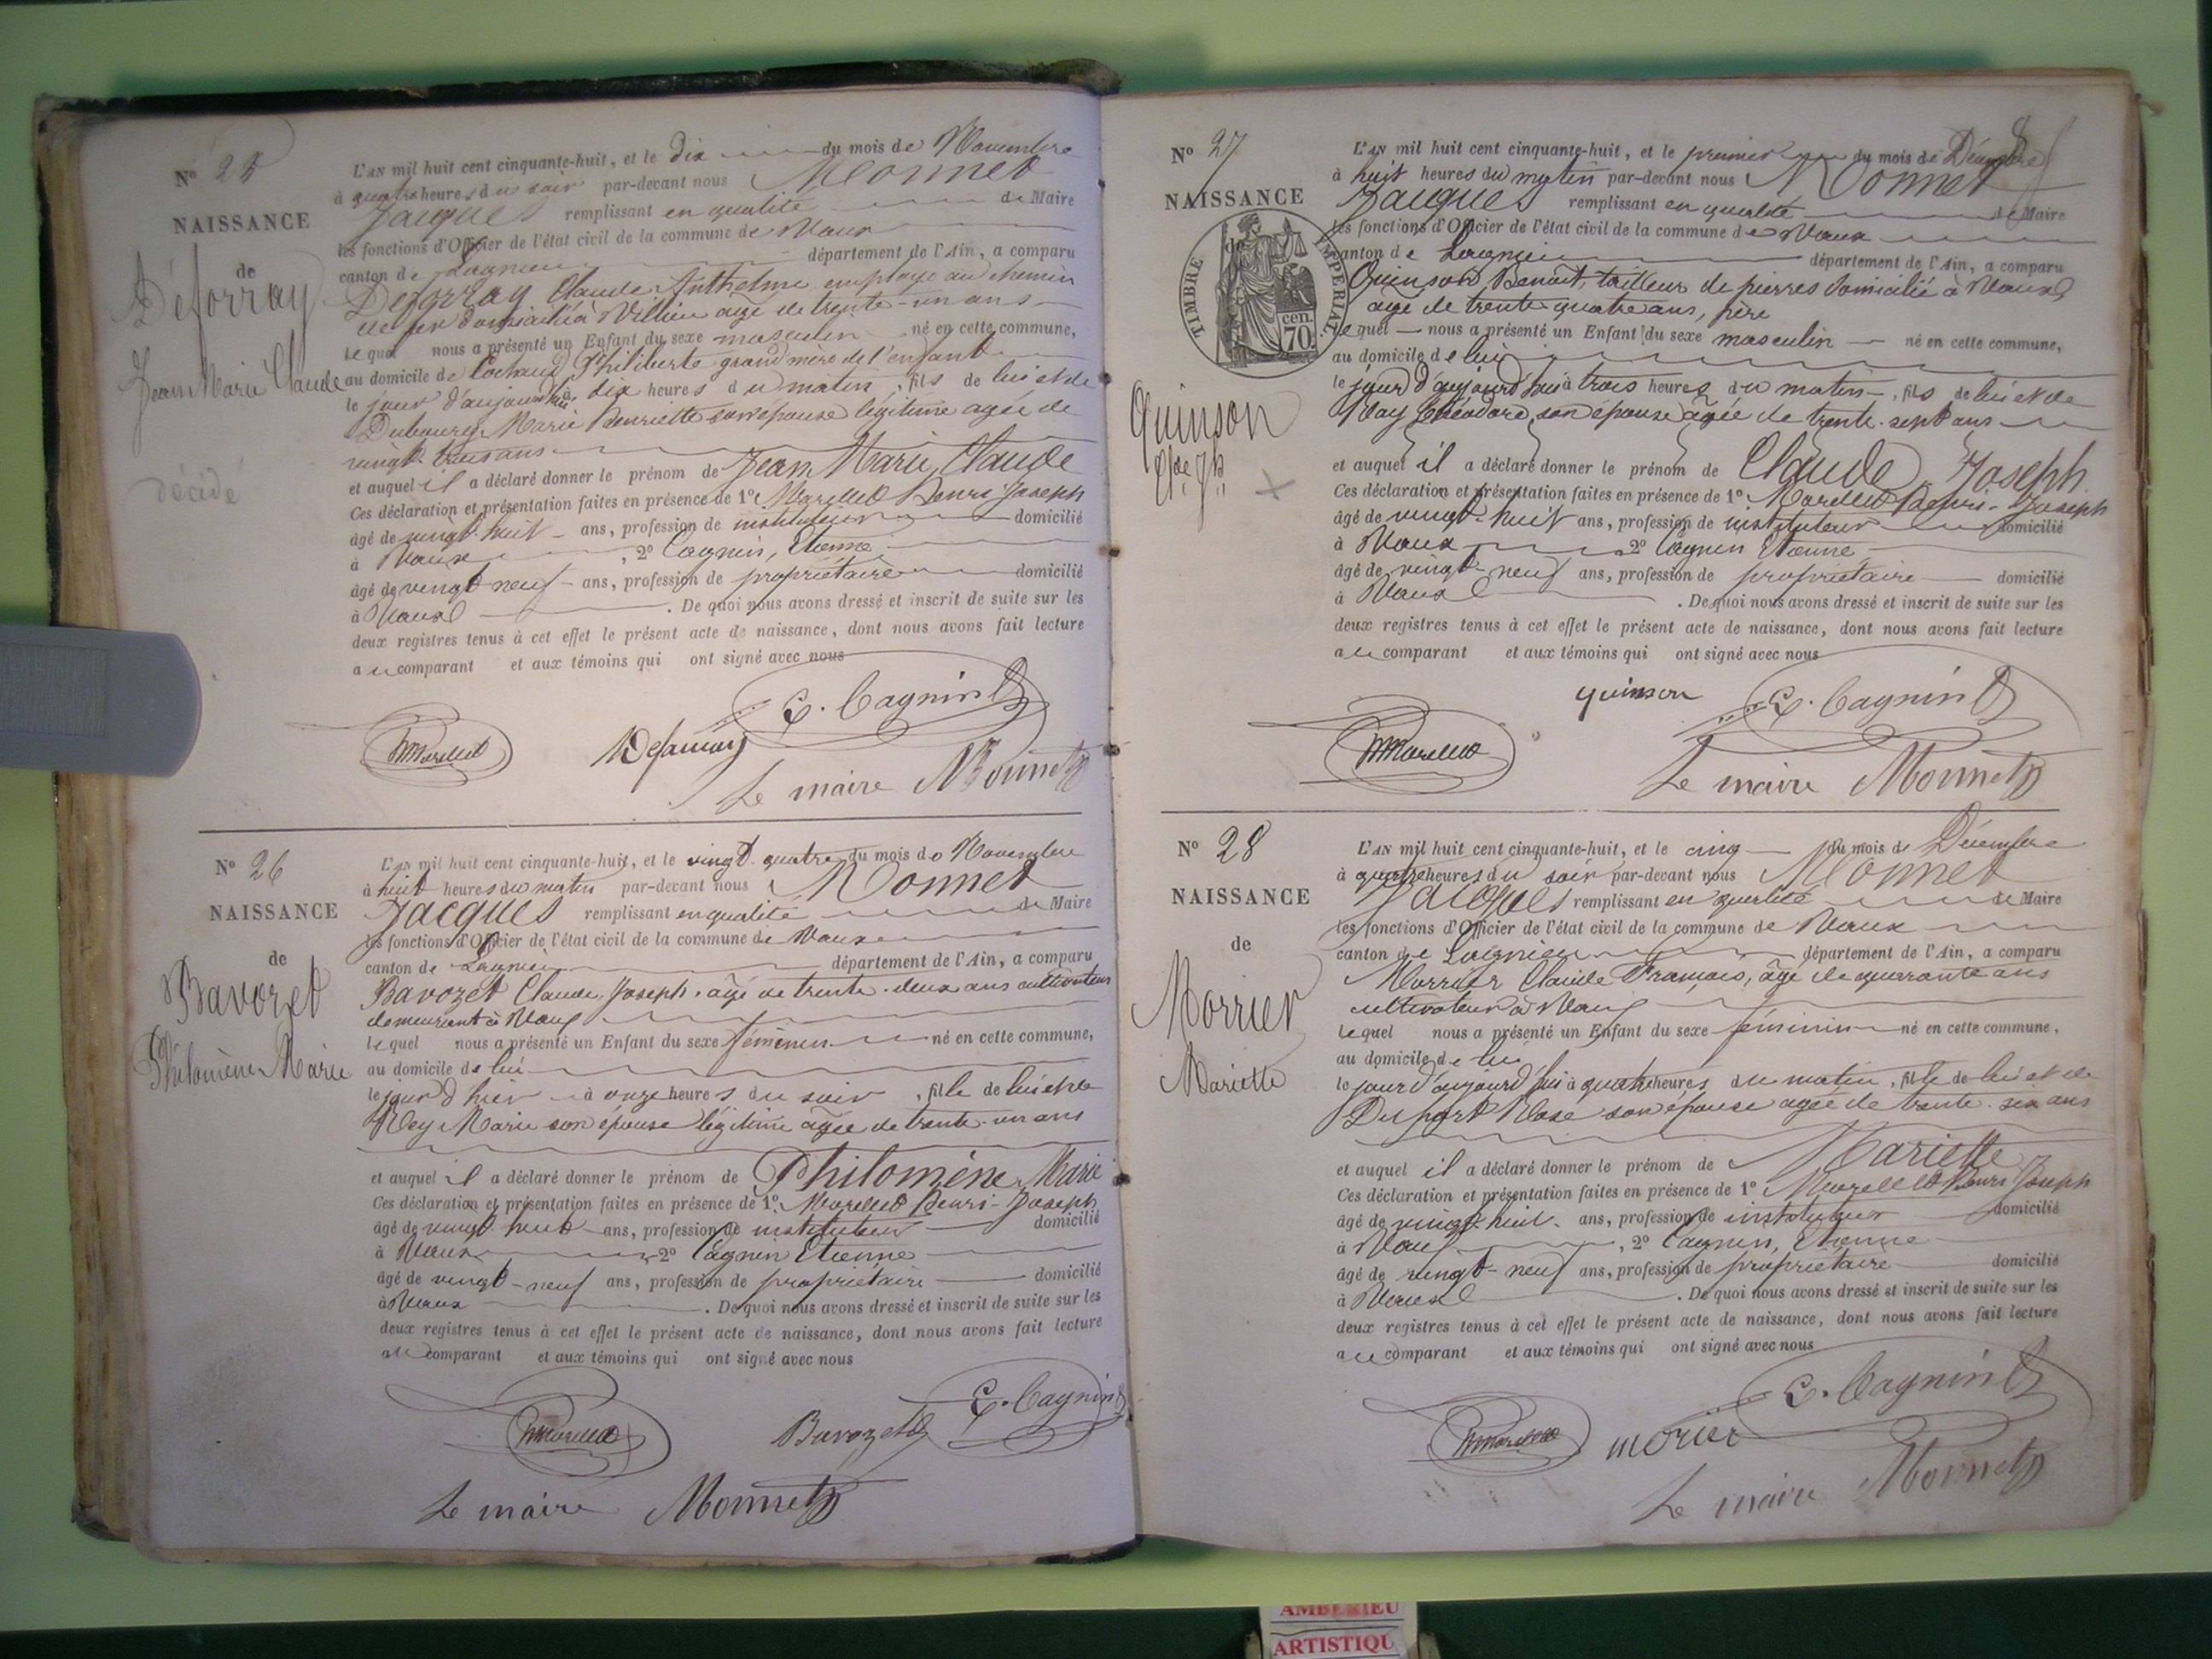 N° 25
NAISSANCE
de
Déforray
Jean Marie Claude
décédé
L'AN mil huit cent cinquante-huit, et le dix du mois de Novembre
à quatre heures du soir par-devant nous Monnet
Jacques remplissant en qualité de Maire
les fonctions d'Officier de l'état civil de la commune de Vaux
canton de Lagnieu département de l'Ain, a comparu
Déforray Claude Anthelme employé au chemin
de fer domicilié à Villieu âgé de trente-un ans
lequel nous a présenté un Enfant du sexe masculin né en cette commune,
au domicile de Philiberte grand'mère de l'enfant
le jour d'aujourd'hui à dix heures du matin, fils de lui et de
Dubourg Marie Henriette son épouse légitime agée de
vingt-trois ans
et auquel il a déclaré donner le prénom de Jean Marie Claude
Ces déclaration et présentation faites en présence de 1° Morellet Henri Joseph
âgé de vingt-huit ans, profession de instituteur domicilié
à Vaux, 2° Cagnin, Etienne
âgé de vingt neuf ans, profession de propriétaire domicilié
à Vaux. De quoi nous avons dressé et inscrit de suite sur les
deux registres tenus à cet effet le présent acte de naissance, dont nous avons fait lecture
au comparant et aux témoins qui ont signé avec nous
E. Cagnin
HMorellet
Le maire Monnet
N° 26
NAISSANCE
de
Bavozet
Philomène Marie
L'AN mil huit cent cinquante-huit, et le vingt-quatre du mois de Novembre
à huit heures du matin par-devant nous Monnet
Jacques remplissant en qualité de Maire
les fonctions d'Officier de l'état civil de la commune de Vaux
canton de Lagnieu département de l'Ain, a comparu
Bavozet Claude Joseph âgé de trente-deux ans cultivateur
demeurant à Vaux
lequel nous a présenté un Enfant du sexe féminin né en cette commune,
au domicile de lui
le jour d'hier à onze heures du soir, fille de lui et de
Rey Marie son épouse légitime âgée de trente-un ans
et auquel il a déclaré donner le prénom de Philomène Marie
Ces déclaration et présentation faites en présence de 1° Morellet Henri-Joseph
âgé de vingt-huit ans, profession de instituteur domicilié
à Vaux 2° Cagnin Etienne
âgé de vingt-neuf ans, profession de propriétaire domicilié
à Vaux. De quoi nous avons dressé et inscrit de suite sur les
deux registres tenus à cet effet le présent acte de naissance, dont nous avons fait lecture
au comparant et aux témoins qui ont signé avec nous
E. Cagnin
HMorellet Bavozet
Le maire Monnet
N° 27
NAISSANCE
de
TIMBRE IMPERIAL
70 cen.
Quinson
Cde Jh
L'AN mil huit cent cinquante-huit, et le premier du mois de Décembre
à huit heures du matin par-devant nous Monnet
Jacques remplissant en qualité de Maire
les fonctions d'Officier de l'état civil de la commune de Vaux
canton de Lagnieu département de l'Ain, a comparu
Quinson Benoit, tailleur de pierres domicilié à Vaux
âgé de trente quatre ans, père
lequel nous a présenté un Enfant du sexe masculin né en cette commune,
au domicile de lui
le jour d'aujourd'hui à trois heures du matin, fils de lui et de
Théodore son épouse âgée de trente-sept ans
et auquel il a déclaré donner le prénom de Claude Joseph
Ces déclaration et présentation faites en présence de 1° Morellet Henri-Joseph
âgé de vingt-huit ans, profession de instituteur domicilié
à Vaux 2° Cagnin Etienne
âgé de vingt-neuf ans, profession de propriétaire domicilié
à Vaux. De quoi nous avons dressé et inscrit de suite sur les
deux registres tenus à cet effet le présent acte de naissance, dont nous avons fait lecture
au comparant et aux témoins qui ont signé avec nous
quinson E. Cagnin
HMorellet
Le maire Monnet
N° 28
NAISSANCE
de
Morrier
Mariette
L'AN mil huit cent cinquante-huit, et le cinq du mois de Décembre
à quatre heures du soir par-devant nous Monnet
Jacques remplissant en qualité de Maire
les fonctions d'Officier de l'état civil de la commune de Vaux
canton de Lagnieu département de l'Ain, a comparu
Morrier Claude François, âgé de quarante ans
cultivateur à Vaux
lequel nous a présenté un Enfant du sexe féminin né en cette commune,
au domicile de lui
le jour d'aujourd'hui à quatre heures du matin, fille de lui et de
Duport Rose son épouse agée de trente-six ans
et auquel il a déclaré donner le prénom de Mariette
Ces déclaration et présentation faites en présence de 1° Morellet Henri Joseph
âgé de vingt-huit ans, profession de instituteur domicilié
à Vaux, 2° Cagnin, Etienne
âgé de vingt-neuf ans, profession de propriétaire domicilié
à Vaux. De quoi nous avons dressé et inscrit de suite sur les
deux registres tenus à cet effet le présent acte de naissance, dont nous avons fait lecture
au comparant et aux témoins qui ont signé avec nous
E. Cagnin
HMorellet morier
Le maire Monnet
AMBERIEU
ARTISTIQU